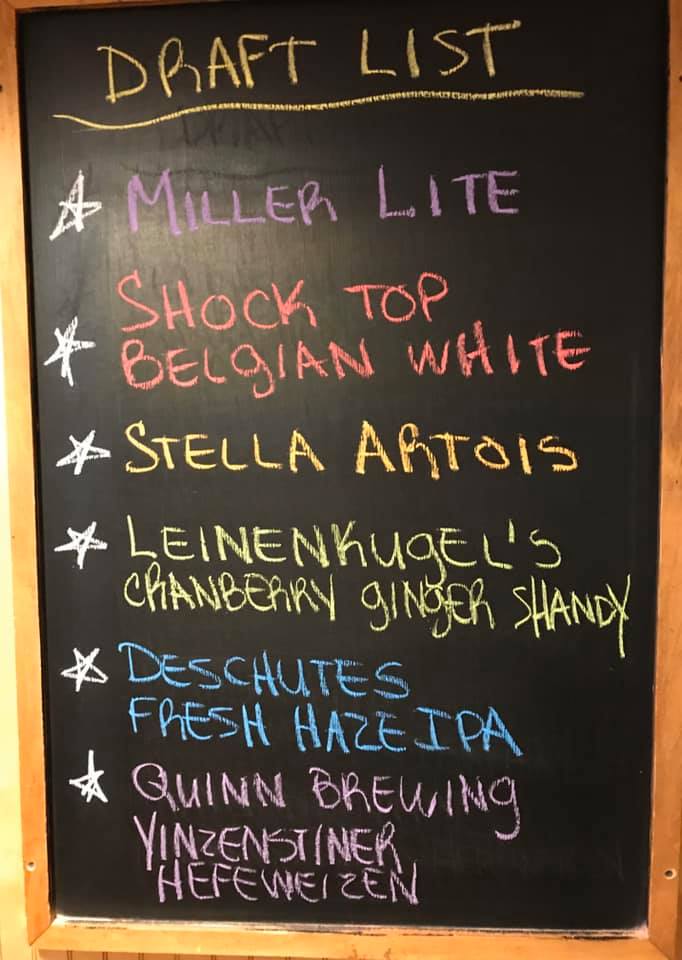 DRAFT LIST
MILLER LITE
SHOCK TOP
BELGIAN WHITE
STELLA ARTOIS
LEINENKUGEL'S
CRANBERRY GINGER SHANDY
DESCHUTES
FRESH HAZE IPA
QUINN BREWING
YINZENSTINER
HEFEWEIZEN